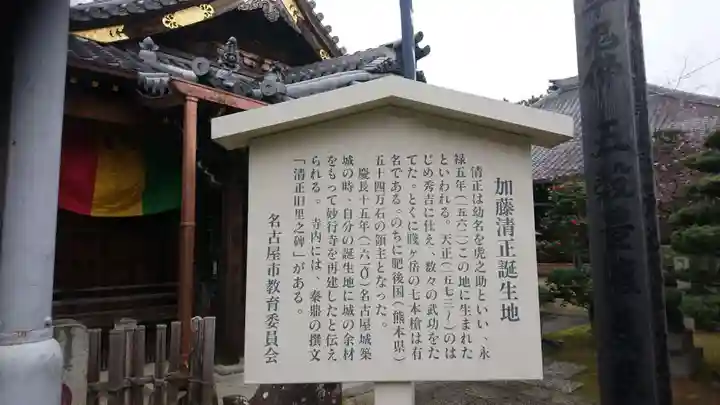 加藤清正誕生地
清正は幼名を虎之助といい、永
禄五年(一五六二)この地に生まれた
といわれる。天正(一五七三~)のは
じめ秀吉に仕え、数々の武功をた
てた。とくに賤ヶ岳の七本槍は有
名である。のちに肥後国(熊本県)
五十四万石の領主となった。
慶長十五年(一六一〇)名古屋城築
城の時、自分の誕生地に城の余材
をもって妙行寺を再建したと伝え
られる。 寺内には、秦鼎の撰文
「清正旧里之碑」がある。
名古屋市教育委員会